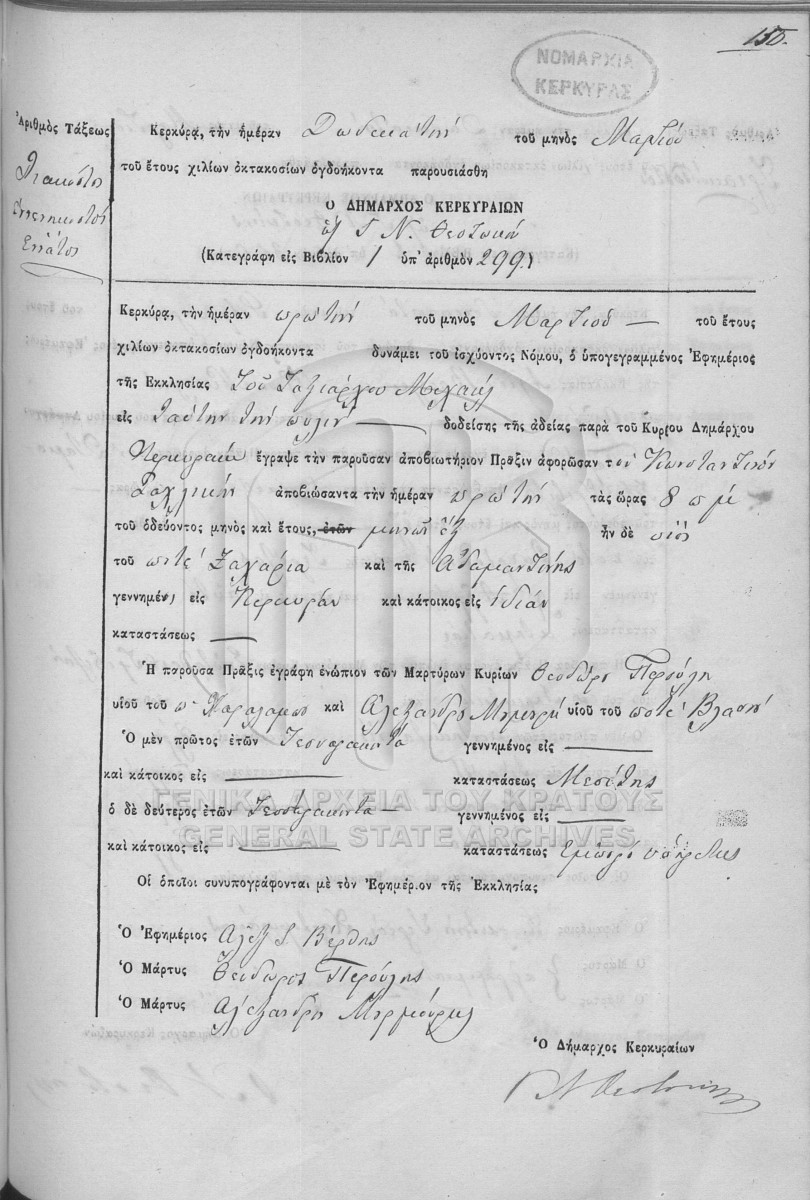 150.
ΝΟΜΑΡΧΙΑ
ΚΕΡΚΥΡΑΣ
Ἀριθμὸς Τάξεως
Διακόσιοι
ἐννενηκοστὸς
Ἐννάτος
Κερκύρᾳ, τὴν ἡμέραν Δωδεκάτην τοῦ μηνὸς Μαρτίου
τοῦ ἔτους χιλίων ὀκτακοσίων ὀγδοήκοντα παρουσιάσθη
Ο ΔΗΜΑΡΧΟΣ ΚΕΡΚΥΡΑΙΩΝ
Γ Ν. Θεοτόκη
(Κατεγράφη εἰς Βιβλίον 1 ὑπ' ἀριθμὸν 299.)
Κερκύρᾳ, τὴν ἡμέραν πρώτην τοῦ μηνὸς Μαρτίου — τοῦ ἔτους
χιλίων ὀκτακοσίων ὀγδοήκοντα δυνάμει τοῦ ἰσχύοντος Νόμου, ὁ ὑπογεγραμμένος Ἐφημέριος
τῆς Ἐκκλησίας Τοῦ Ταξιάρχου Μιχαὴλ
εἰς ταύτην τὴν πόλιν — δοθείσης τῆς ἀδείας παρὰ τοῦ Κυρίου Δημάρχου
Κερκυραίων ἔγραψε τὴν παροῦσαν ἀποβιωτήριον Πρᾶξιν ἀφορῶσαν τὸν Κωνσταντῖνον
ἀποβιώσαντα τὴν ἡμέραν πρώτην τὰς ὥρας 8 π μ
τοῦ ὁδεύοντος μηνὸς καὶ ἔτους, ἐτῶν μηνῶν ἓξ ἦν δὲ υἱὸς
τοῦ ποτὲ Ζαχαρία καὶ τῆς Ἀδαμαντίνης
γεννημέν εἰς Κερκύραν καὶ κάτοικος εἰς ἰδίαν
καταστάσεως —
Ἡ παροῦσα Πρᾶξις ἐγράφη ἐνώπιον τῶν Μαρτύρων Κυρίων Θεοδώρο Περούλη
υἱοῦ τοῦ π. Χαραλάμπο καὶ Ἀλεξάνδρο υἱοῦ τοῦ ποτὲ Βλασίου
Ὁ μὲν πρῶτος ἐτῶν Τεσσαράκοντα γεννημένος εἰς —
καὶ κάτοικος εἰς — καταστάσεως Μεσίτης
ὁ δὲ δεύτερος ἐτῶν Τεσσαράκοντα — γεννημένος εἰς —
καὶ κάτοικος εἰς — καταστάσεως Ἐμποροϋπάλληλος
Οἱ ὁποῖοι συνυπογράφονται μὲ τὸν Ἐφημέριον τῆς Ἐκκλησίας
Ὁ Ἐφημέριος Ἀλεξ Βέρθης
Ὁ Μάρτυς Θεόδωρος Περούλης
Ὁ Μάρτυς Ἀλέξανδρος
Ὁ Δήμαρχος Κερκυραίων
Γ Ν Θεοτόκης
ΓΕΝΙΚΑ ΑΡΧΕΙΑ ΤΟΥ ΚΡΑΤΟΥΣ
GENERAL STATE ARCHIVES